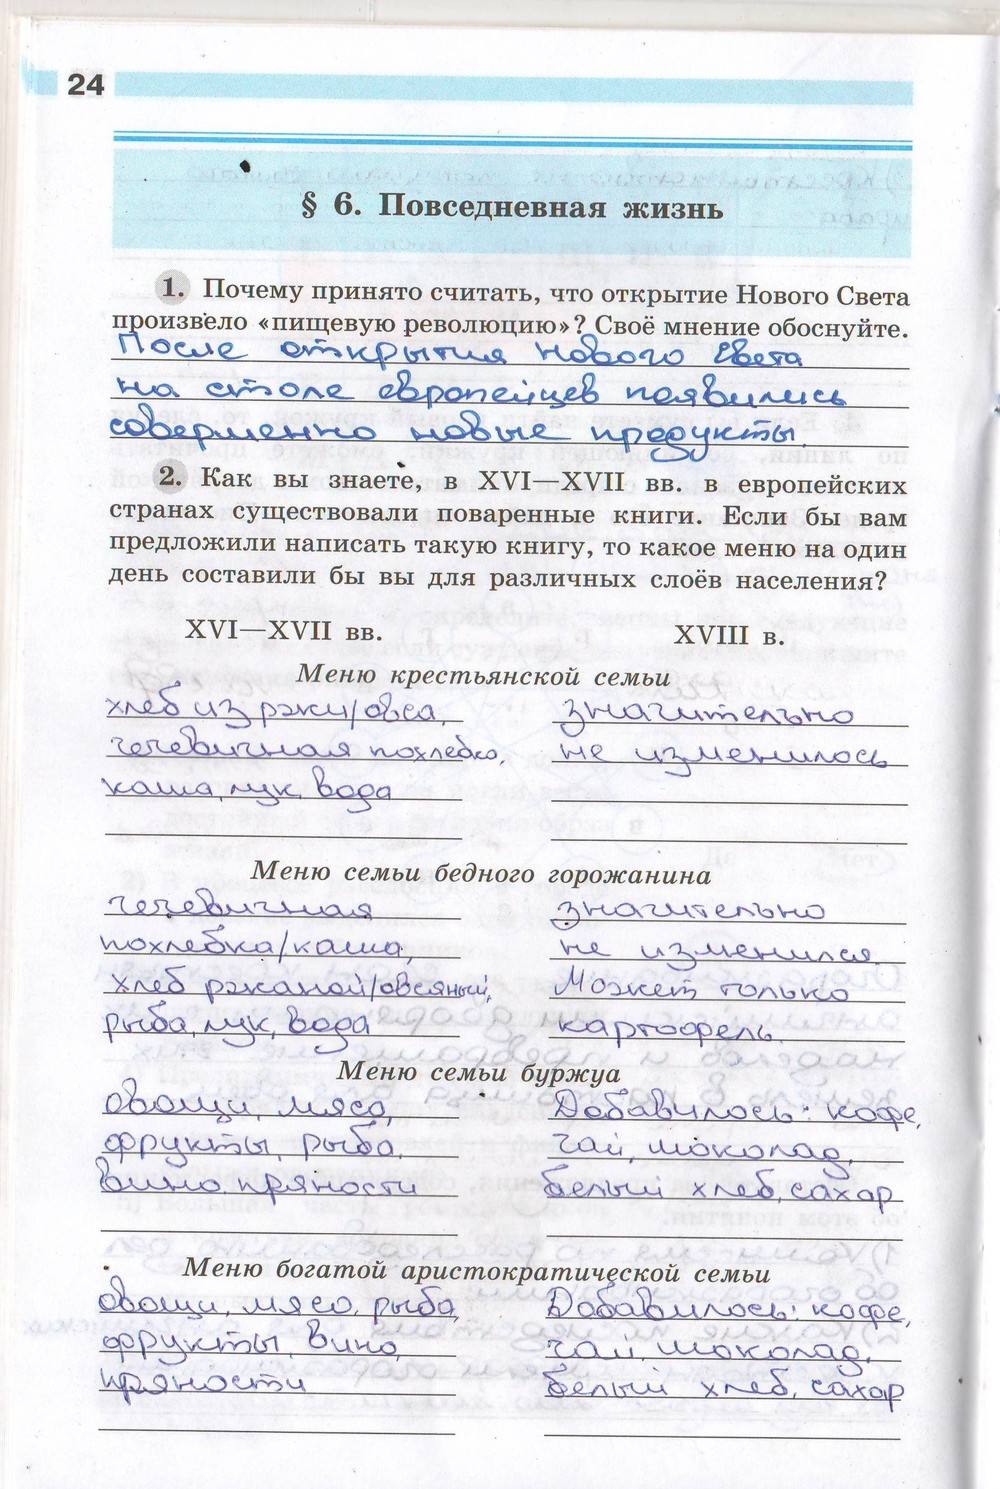 24
§ 6. Повседневная жизнь
1. Почему принято считать, что открытие Нового Света
произвело «пищевую революцию»? Своё мнение обоснуйте.
После открытия нового света
на столе европейцев появились
совершенно новые продукты.
2. Как вы знаете, в XVI—XVII вв. в европейских
странах существовали поваренные книги. Если бы вам
предложили написать такую книгу, то какое меню на один
день составили бы вы для различных слоёв населения?
XVI—XVII вв. XVIII в.
Меню крестьянской семьи
хлеб из ржи/овса, значительно
чечевичная похлебка, не изменилось
каша, лук, вода
Меню семьи бедного горожанина
чечевичная значительно
похлебка/каша, не изменился.
хлеб ржаной/овсяный, Может только
рыба, лук, вода картофель.
Меню семьи буржуа
овощи, мясо, Добавилось: кофе,
фрукты, рыба, чай, шоколад,
вино пряности белый хлеб, сахар
Меню богатой аристократической семьи
овощи, мясо, рыба, Добавилось: кофе,
фрукты, вино, чай, шоколад,
пряности белый хлеб, сахар